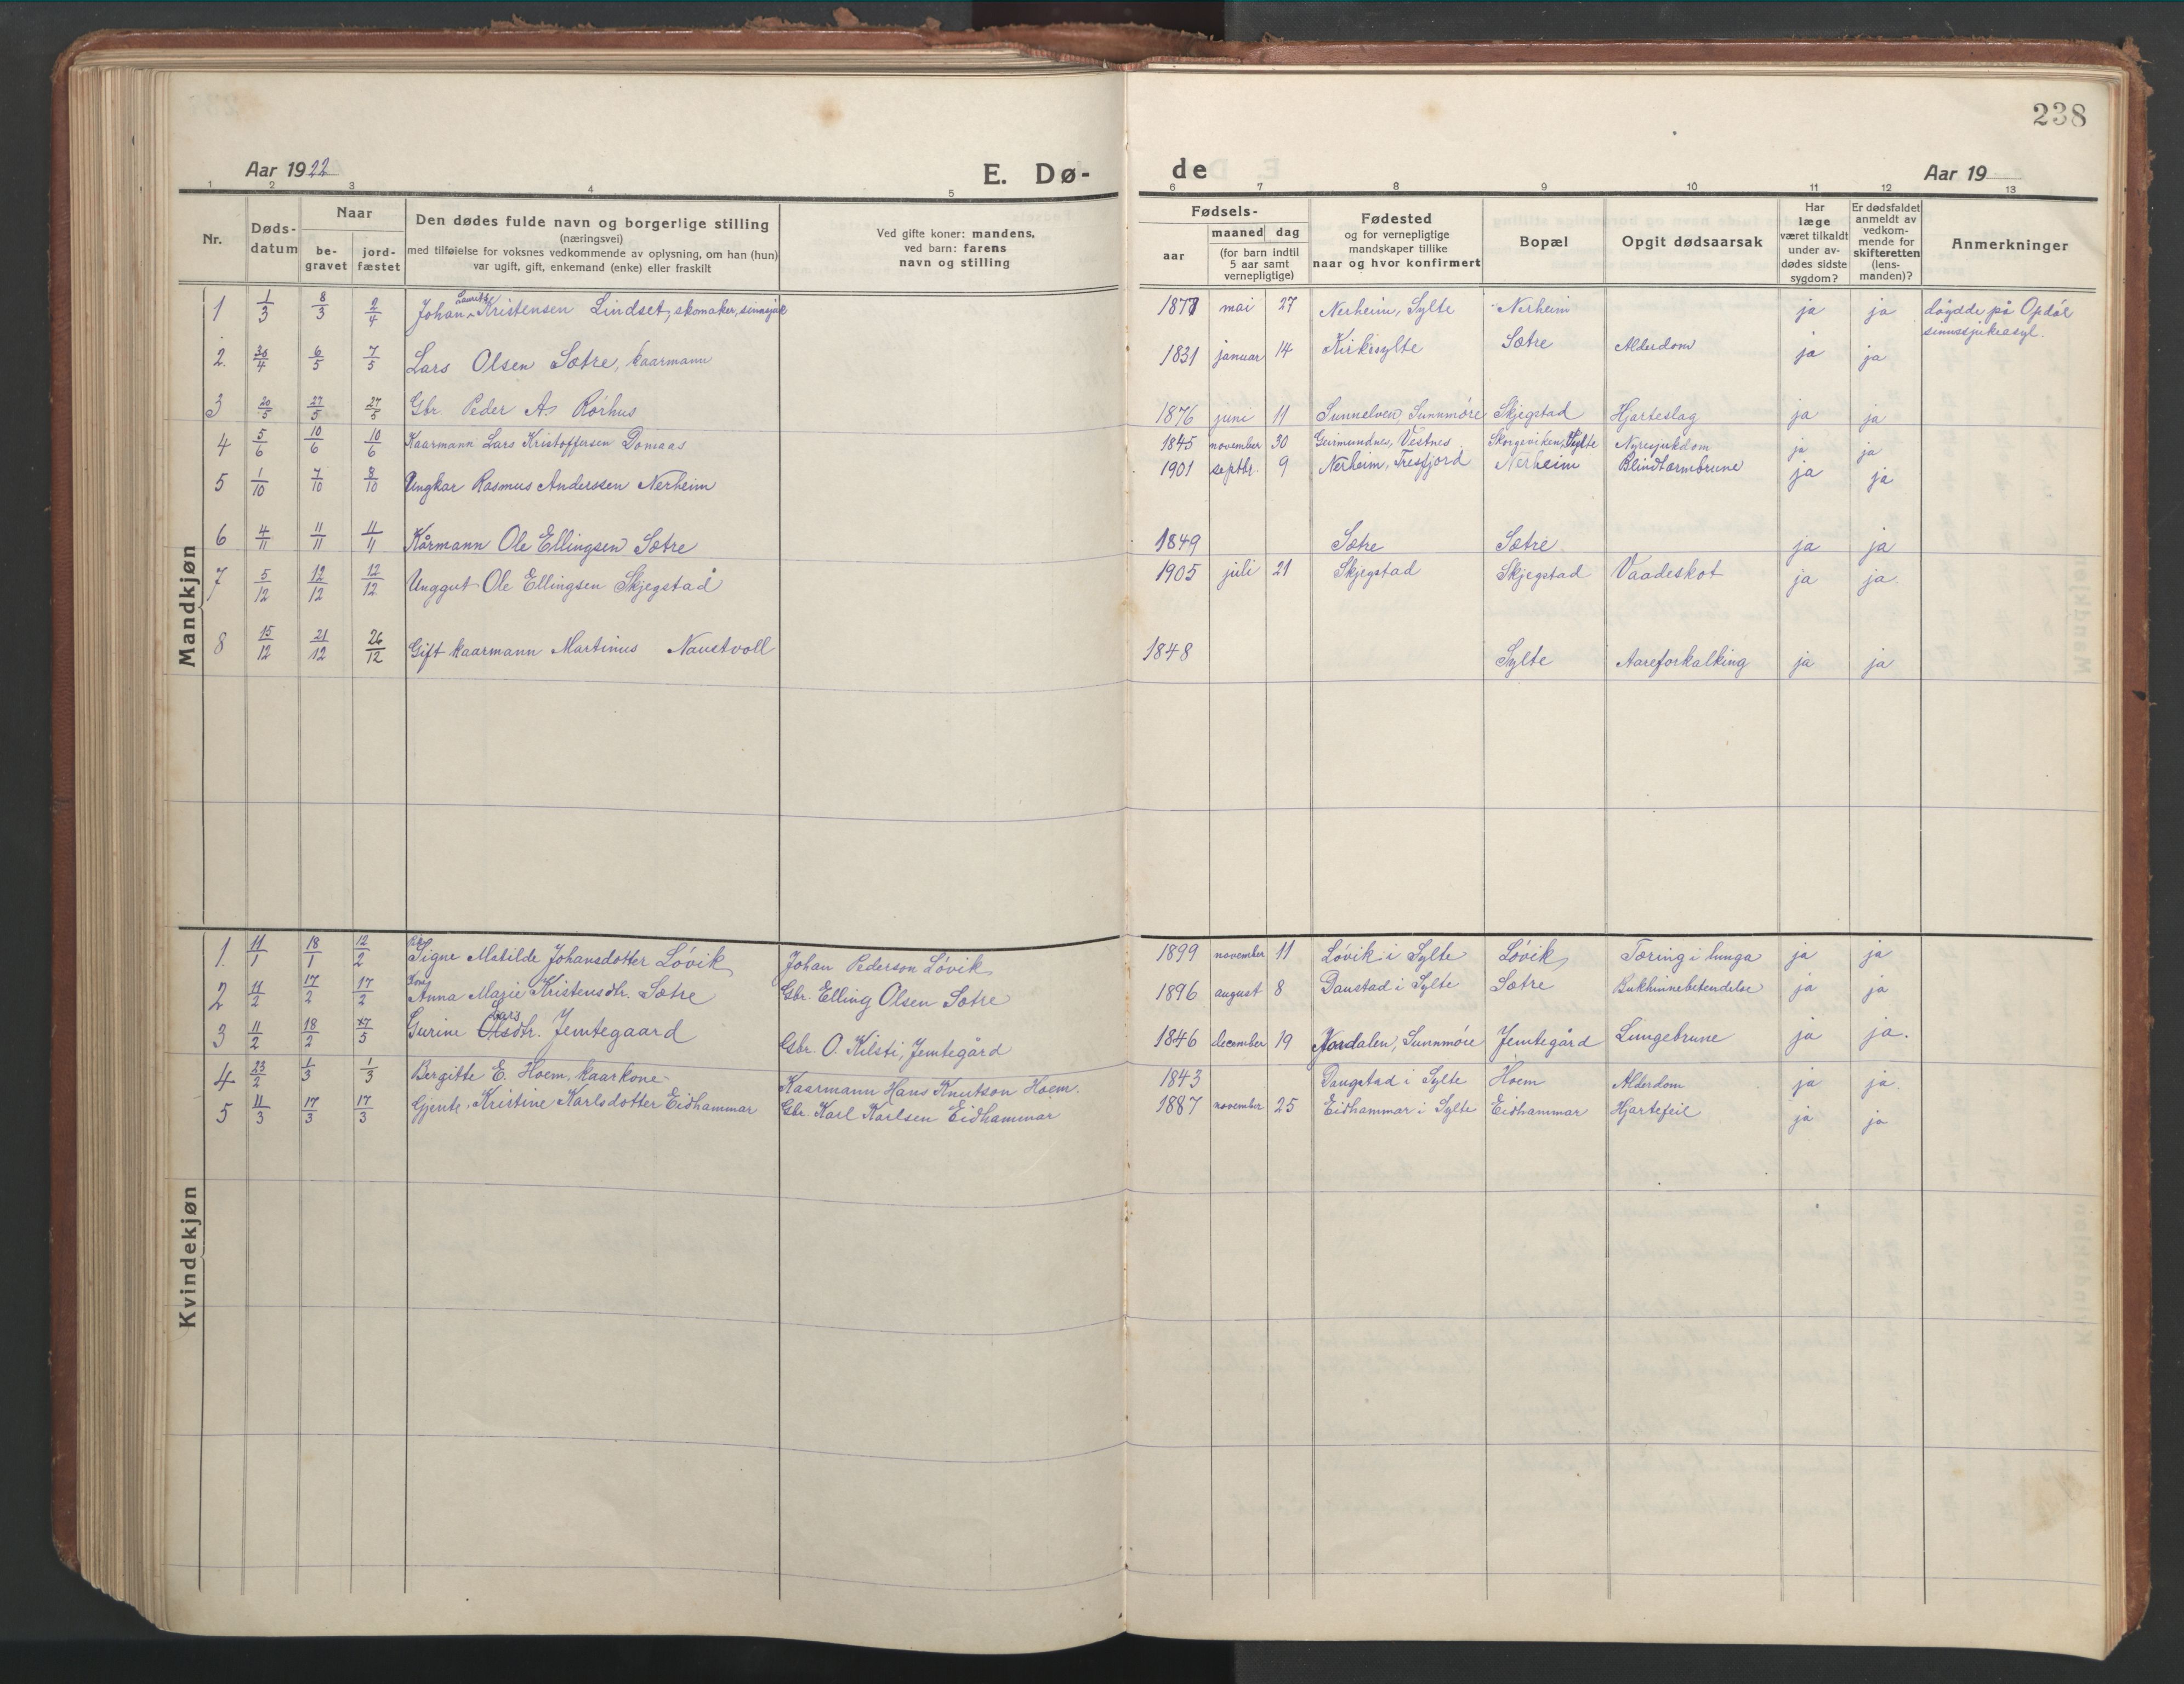 238
Aar 1922 E. Dø- de Aar 19
1 2 3 4 5 6 7 8 9 10 11 12 13
Nr. Døds-datum Naar be-gravet jord-fæstet Den dødes fulde navn og borgerlige stilling (næringsvei) med tilføielse for voksnes vedkommende av oplysning, om han (hun) var ugift, gift, enkemand (enke) eller fraskilt Ved gifte koner: mandens, ved barn: farens navn og stilling Fødsels- aar maaned dag (for barn indtil 5 aar samt vernepligtige) Fødested og for vernepligtige mandskaper tillike naar og hvor konfirmert Bopæl Opgit dødsaarsak Har læge været tilkaldt under av-dødes sidste sygdom? Er dødsfaldet anmeldt av vedkom-mende for skifteretten (lens-manden)? Anmerkninger
Mandkjøn
1 1/3 8/3 2/4 Johan Lauritz Kristensen Lindset, skomaker, sinnsjuk 1877 mai 27 Nerheim, Sylte Nerheim ja ja døydde på Opdøl sinnssjukeasyl.
2. 30/4 6/5 7/5 Lars Olsen Sætre, kaarmann 1831 januar 14 Kirksylte Sætre Alderdom ja ja
3 20/5 27/5 27/5 Gbr. Peder A. Rørhus 1876 juni 11 Sunnelven, Sunnmøre Skjegstad Hjarteslag ja ja
4 5/6 10/6 10/6 Kaarmann Lars Kristoffersen Domaas 1845 november 30 Geirmundnes, Vestnes Skorgeviken, Sylte Nyresjukdom ja ja
5 1/10 7/10 8/10 Ungkar Rasmus Anderssen Nerheim 1901 septbr. 9 Nerheim, Tresfjord Nerheim Blindtarmbrune ja ja
6 4/11 11/11 11/11 Kårmann Ole Ellingsen Sætre 1849 Sætre Sætre ja ja
7 5/12 12/12 12/12 Unggut Ole Ellingsen Skjegstad 1905 juli 21 Skjegstad Skjegstad Vaadeskot ja ja.
8 15/12 21/12 26/12 Gift kaarmann Martinus Naustvoll 1848 Sylte Aareforkalking ja ja
Kvindekjøn
1. 11/1 18/1 12/2 Signe Matilde Johansdotter Løvik Johan Pederson Løvik 1899 november 11 Løvik i Sylte Løvik Tæring i lunga ja ja
2 11/2 17/2 17/2 Kona Anna Marie Kristensdtr. Sætre Gbr. Elling Olsen Sætre 1896 august 8 Daustad i Sylte Sætre Bukhinnebetendelse ja ja
3 11/2 18/2 27/5 Gurine Ols Larsdtr. Jemtegaard Gbr. O. Kilsti, Jemtegård 1846 december 19 Nordalen, Sunnmøre Jemtegård Lungebrune ja ja.
4 23/2 1/3 1/3 Bergitte E. Hoem, kaarkone Kaarmann Hans Knutson Hoem. 1843 Daugstad i Sylte Hoem Alderdom ja ja.
5 11/3 17/3 17/3 Gjente, Kristine Karlsdotter Eidhammar Gbr. Karl Karlsen Eidhammar 1887 november 25 Eidhammar i Sylte Eidhammar Hjartefeil ja ja